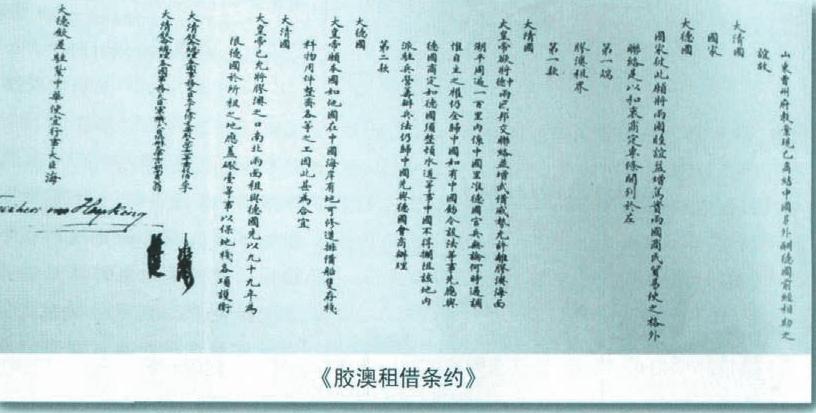 山東曹州府教案現已商結中國另外酬德國前經相助之
誼故
大清國
國家
大德國
國家彼此願將兩國睦誼益增篤實兩國商民貿易使之格外
聯絡是以和衷商定專條開列於左
第一端
膠澳租界
第一款
大清國
大皇帝欲將中德兩國邦交聯絡並增武備威勢允許離膠澳海面
潮平周遍一百里內係中國里准德國官兵無論何時過調
惟自主之權仍全歸中國如有中國飭令設法等事先應與
德國商定如德國須整頓水道等事中國不得攔阻該地內
派駐兵營籌辦兵法仍歸中國先與德國會商辦理
第二款
大德國
大皇帝願本國如他國在中國海岸有地可修造排備船隻存棧
料物用件整齊各等之工因此甚為合宜
大清國
大皇帝已允將膠澳之口南北兩面租與德國先以九十九年為
限德國於所租之地應蓋礮臺等事以保地棧各項護衛
大德欽差駐劄中華便宜行事大臣海
《胶澳租借条约》